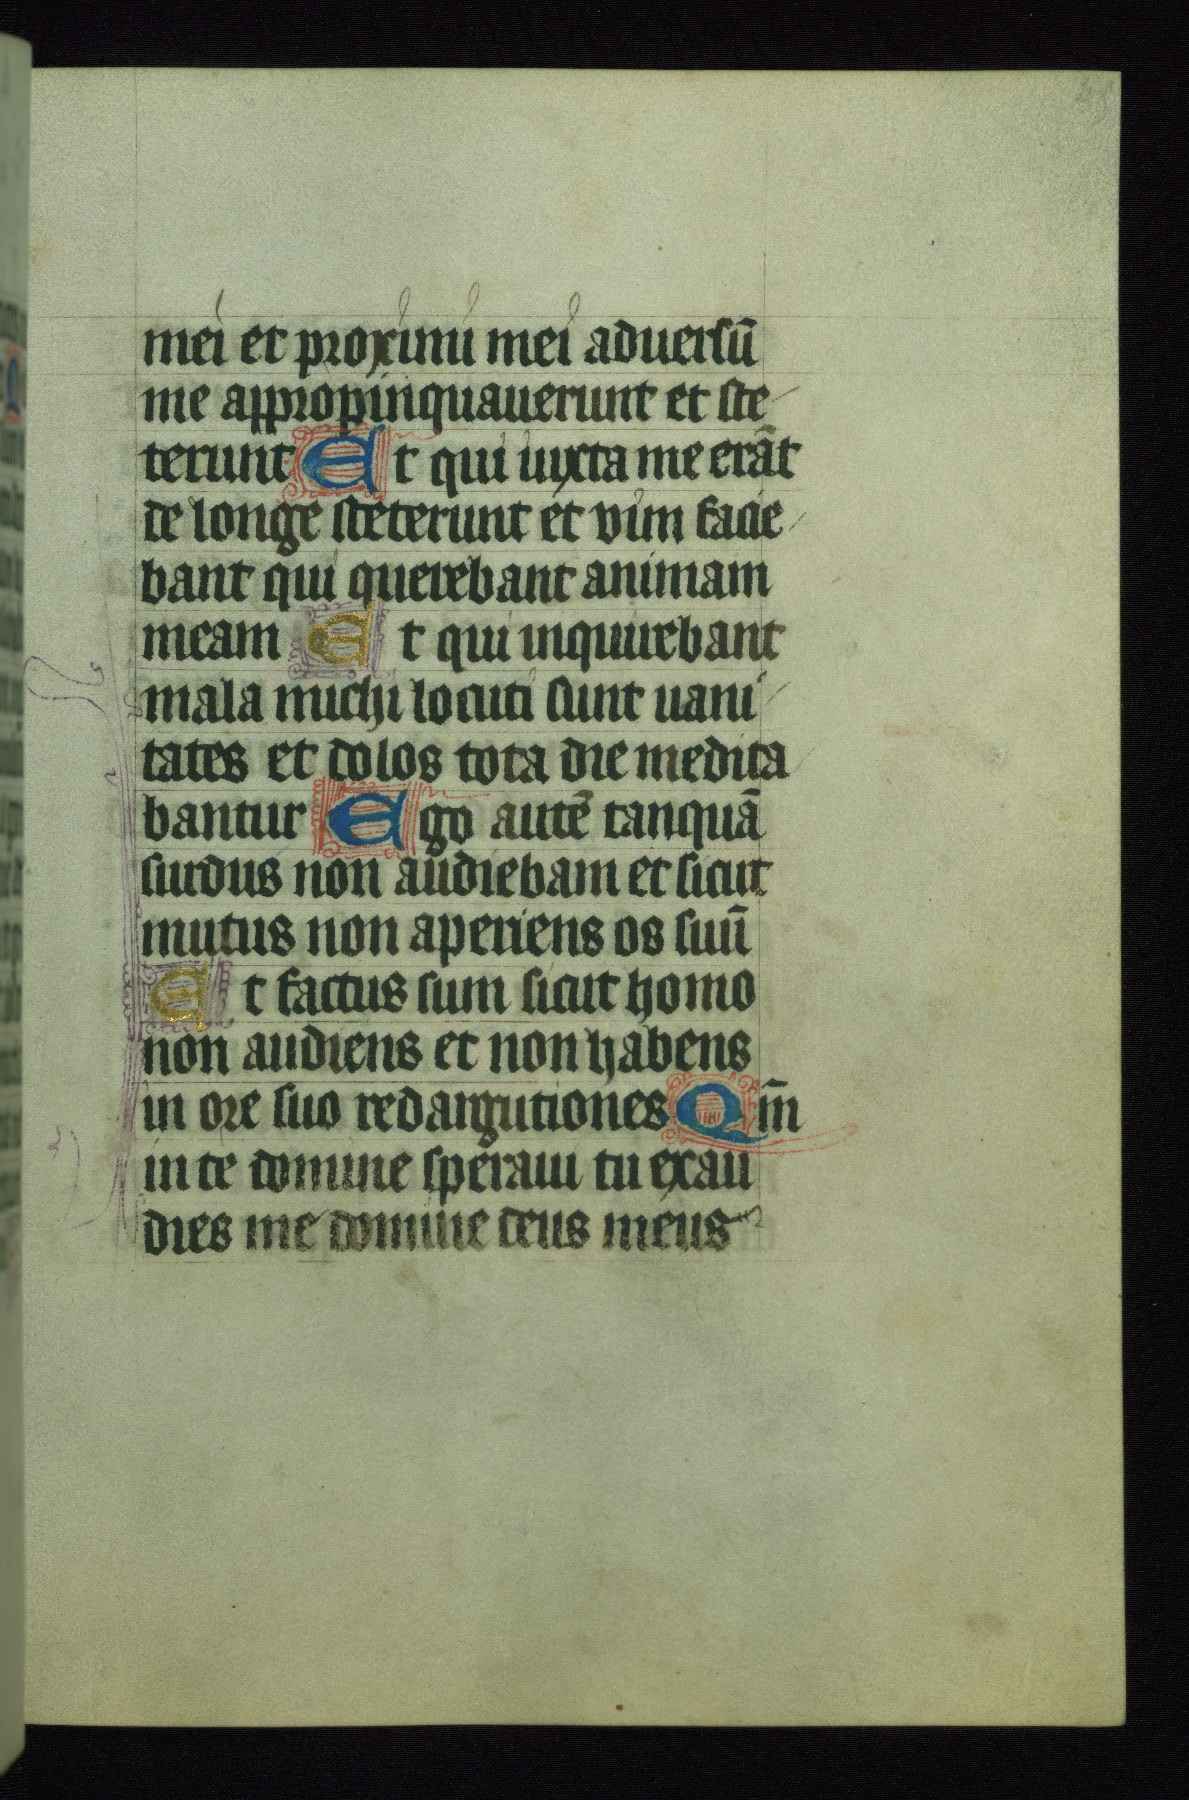 mei et proximi mei aduersū
me appropinquauerunt et ste
terunt Et qui iuxta me erāt
de longe steterunt et vim facie
bant qui querebant animam
meam Et qui inquirebant
mala michi locuti sunt uani
tates et dolos tota die medita
bantur Ego autē tanquā
surdus non audiebam et sicut
mutus non aperiens os suū
Et factus sum sicut homo
non audiens et non habens
in ore suo redargutiones Qm̄
in te domine speraui tu exau
dies me domine deus meus